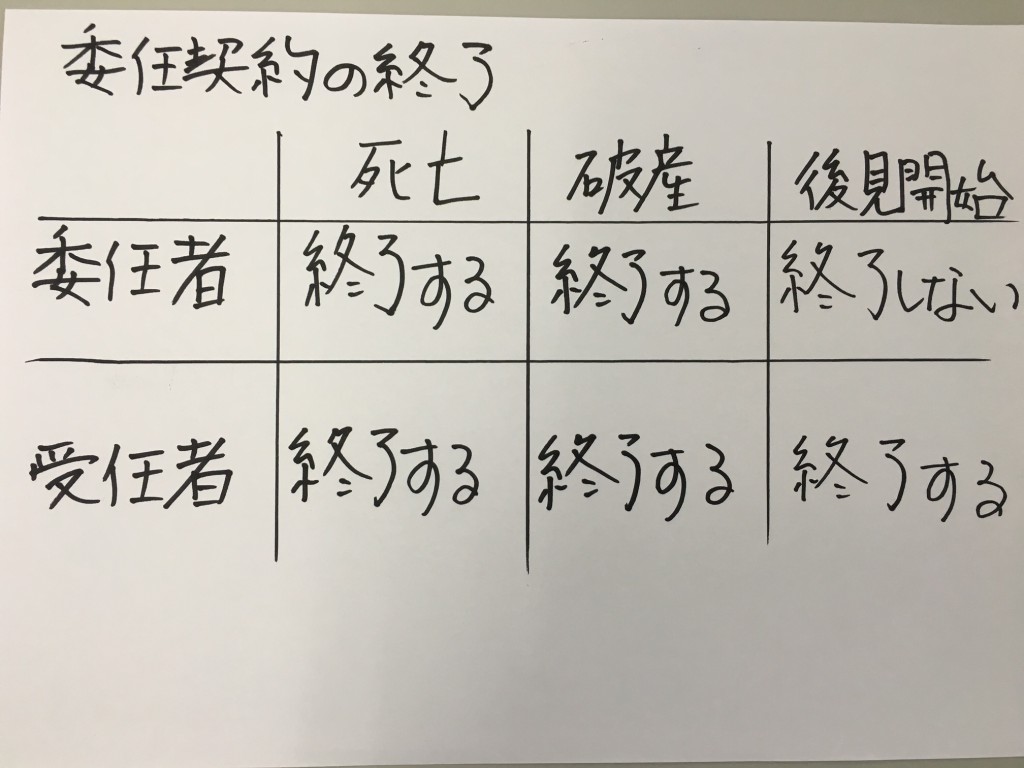 委任契約の終了
死亡 破産 後見開始
委任者 終了する 終了する 終了しない
受任者 終了する 終了する 終了する